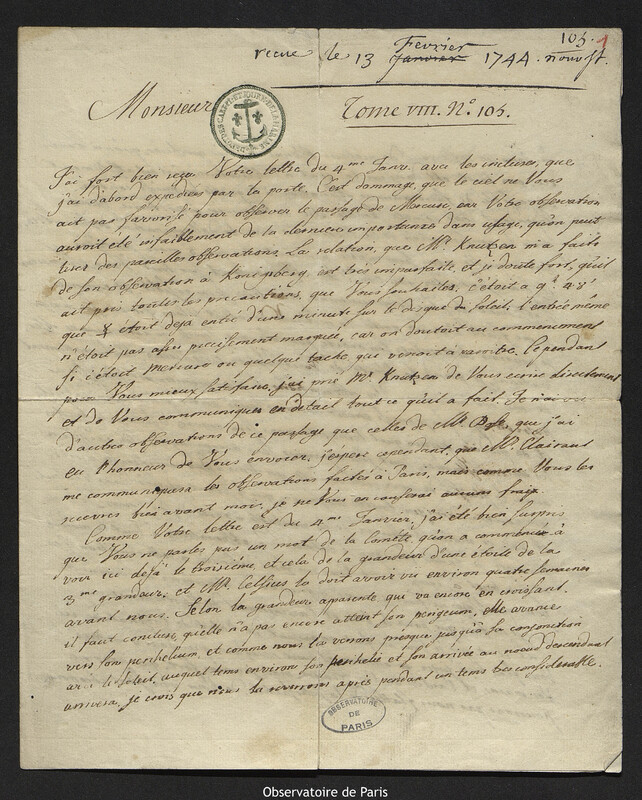 105. 1
recue le 13 Fevrier Janvier 1744. nouv st.
Monsieur
Tome VIII. N.° 105.
J'ai fort bien reçu Votre lettre du 4me Janv. avec les incluses, que
j'ai d'abord expediées par la poste. C'est dommage, que le ciel ne Vous
ait pas favorisé pour observer le passage de Mercure, car Votre observation
auroit été infailliblement de la derniere importance dans l'usage, qu'on peut
tirer des pareilles observations. La relation, que Mr. Knutzen m'a faite
de son observation à Konigsberg est très imparfaite, et je doute fort, qu'il
ait pris toutes les precautions, que Vous souhaités. C'étoit a 9h 48'
que ☿ étoit deja entré d'une minute sur le disque du Soleil. l'entrée même
n'étoit pas assés precisement marquée, car on doutoit au commencement
si c'étoit mercure ou quelque tache qui venoit a paroitre. Cependant
pour Vous mieux satisfaire, j'ai prié Mr. Knutzen de Vous ecrire directement
et de Vous communiquer en detail tout ce qu'il a fait. Je n'ai
d'autres observations de ce passage que celles de Mr. Bose, que j'ai
eu l'honneur de Vous envoyer, j'espere cependant, que Mr. Clairaut
me communiquera les observations faites à Paris, mais comme Vous les
recevrés bien avant moy, je ne Vous en causerai aucuns fraix.
Comme Votre lettre est du 4me Janvier, j'ai été bien surpris
que Vous ne parlés pas un mot de la Comète, qu'on a commencée à
voir ici déjà le troisième, et cela de la grandeur d'une étoile de la
3me grandeur; et Mr. Celsius la doit avoir vu environ quatre semaines
avant nous. Selon la grandeur aparente qui va encore en croissant,
il faut conclure, qu'elle n'a pas encore atteint son perigeum, elle avance
vers son perihelium, et comme nous la verrons presque jusqu'à sa conjonction
avec le Soleil, auquel tems environ son perihelie et son arrivée au noeud descendant
arrivera, je crois que nous la reverrons après pendant un tems tres considerable.
OBSERVATOIRE
DE
PARIS
Observatoire de Paris